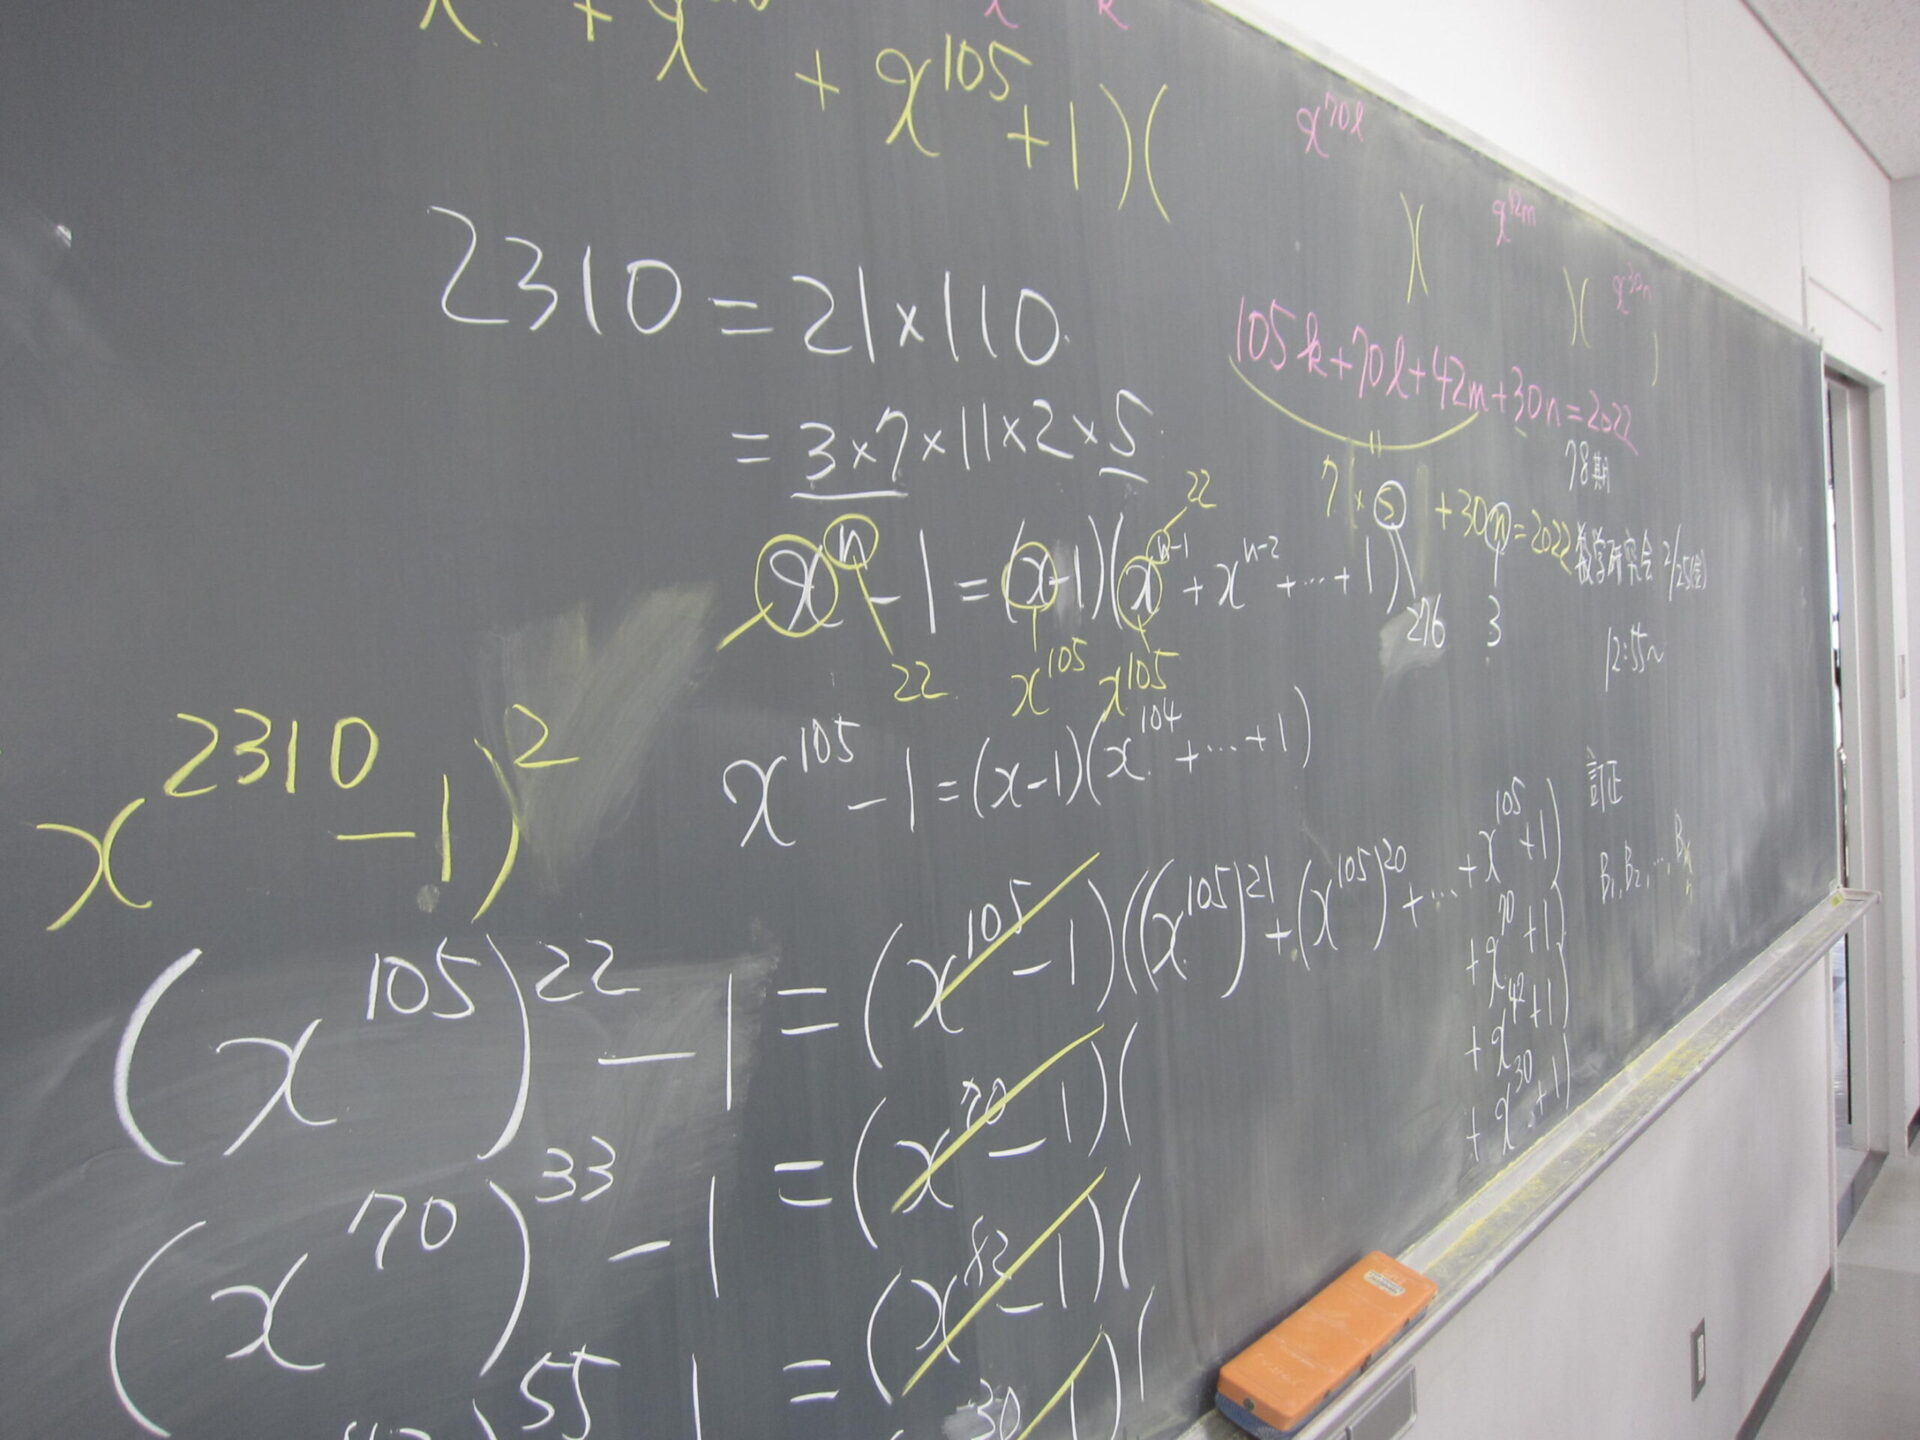 + x^105 + 1 ) (
x^70l
x^42m
x^30n
2310 = 21 × 110
= 3×7×11×2×5
105k+70l+42m+30n=2022
7 × 5 +30n=2022
276 3
78期
数学研究会 2/25(金)
12:55~
22
x^n - 1 = (x-1)(x^n-1 + x^n-2 + ... + 1)
22 x^105 x^105
x^105 - 1 = (x-1)(x^104 + ... + 1)
x^2310 - 1)^2
訂正
B1, B2, ...,
(x^105)^22 - 1 = (x^105 - 1)((x^105)^21 + (x^105)^20 + ... + x^105 + 1)
+ x^70 + 1)
+ x^42 + 1)
+ x^30 + 1)
(x^70)^33 - 1 = (x^70 - 1)(
55 1 = (x^42 - 1)(
30 1)(